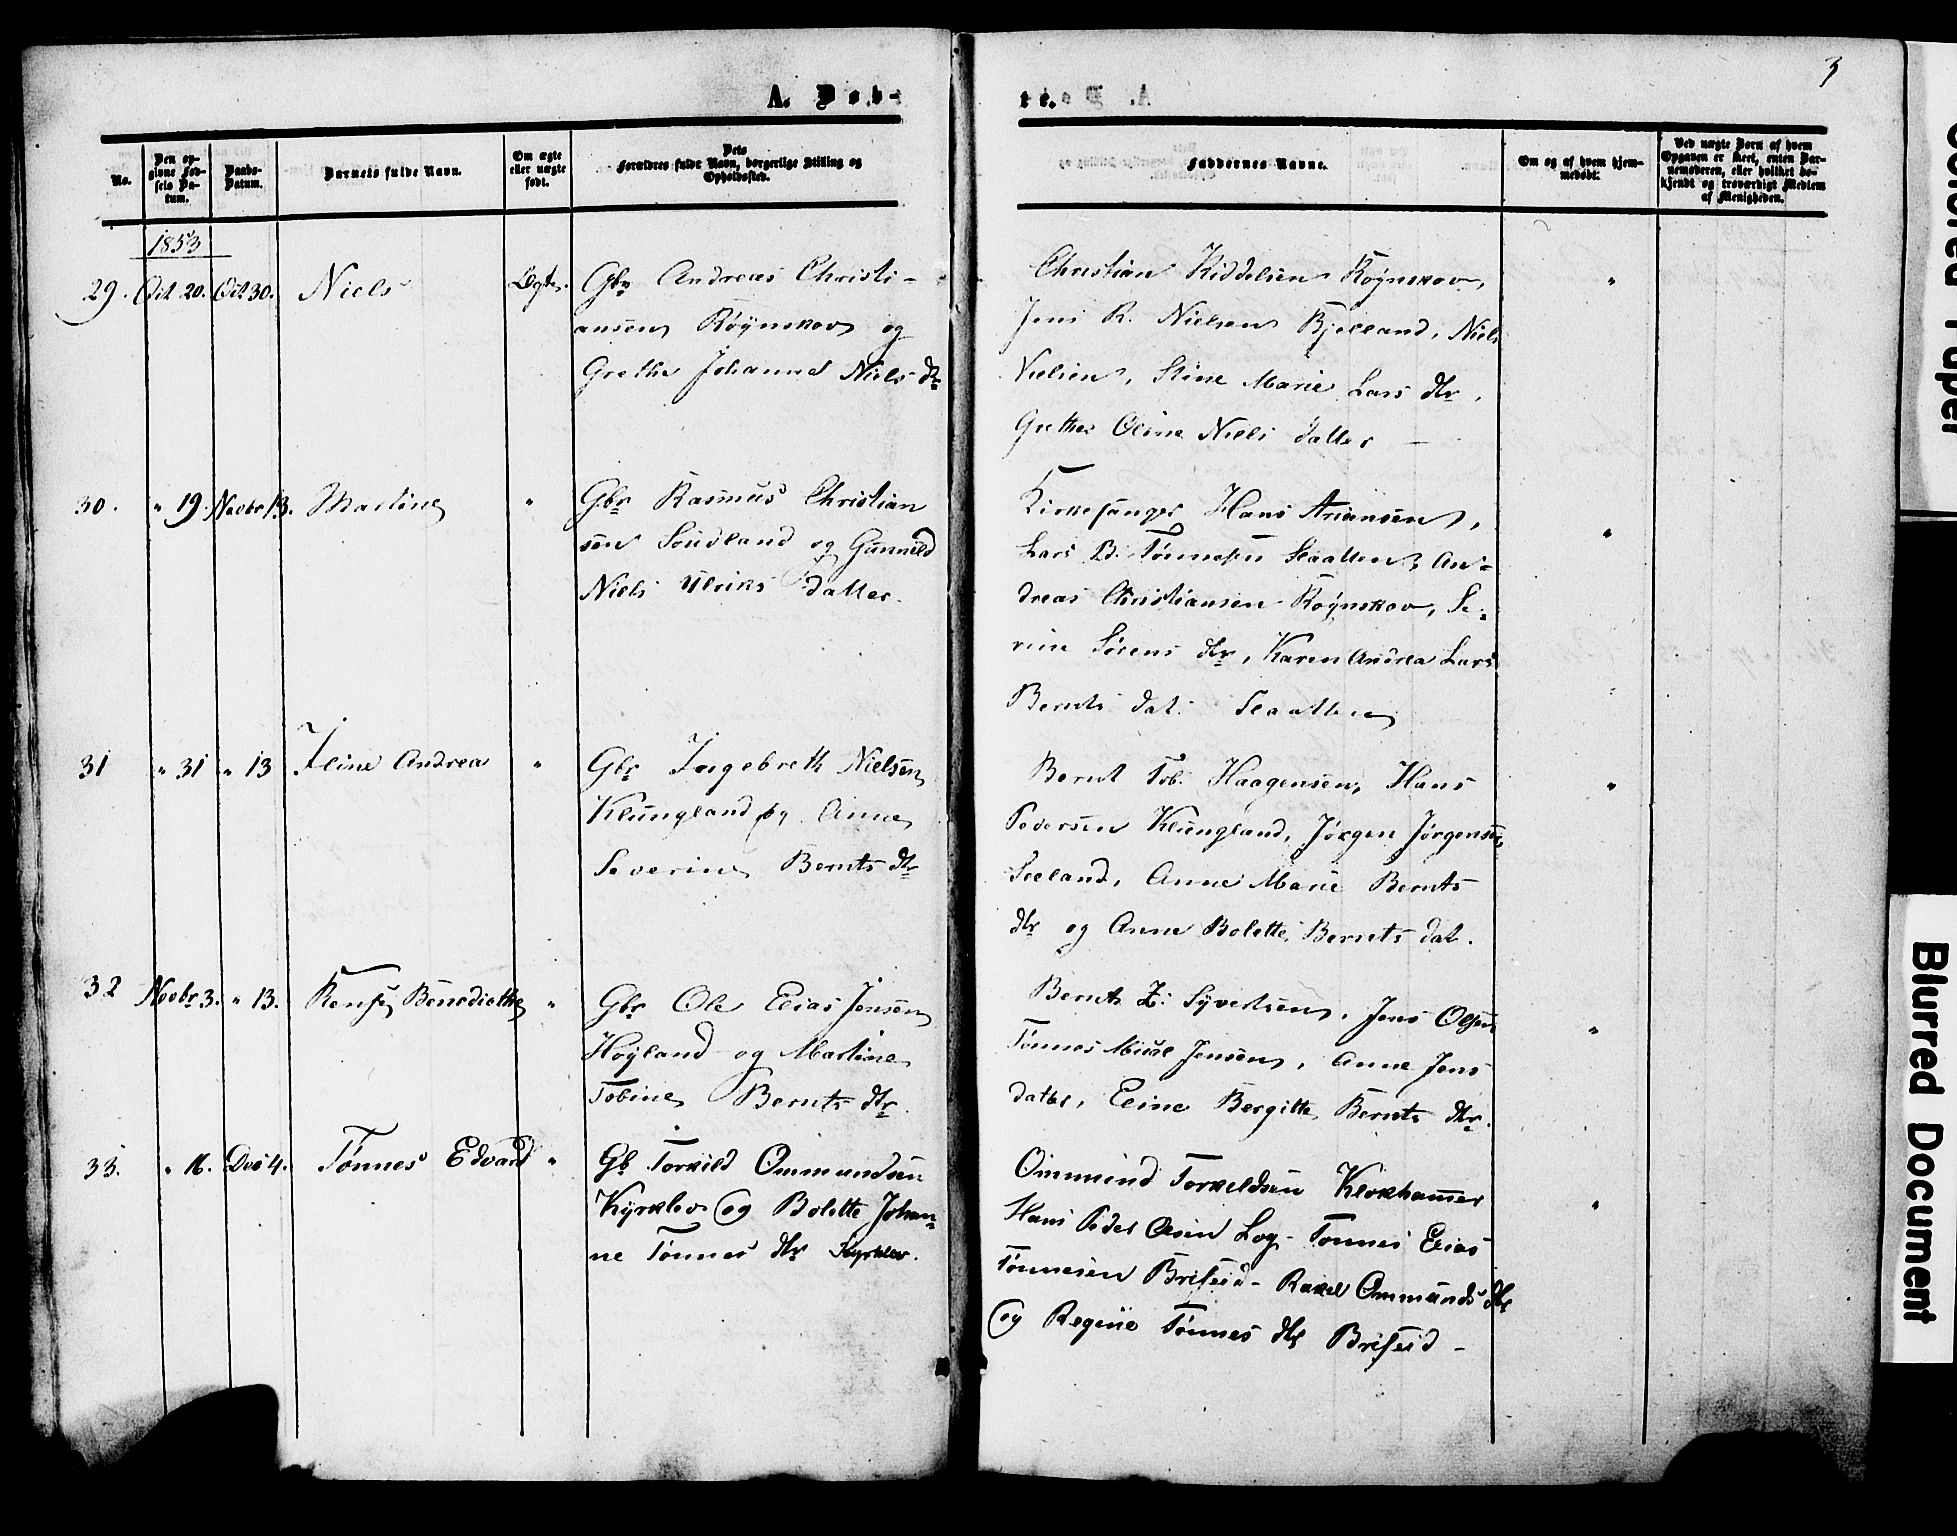 3
A. Døb-
te.
No.
Den op-
givne Fød-
sels Da-
tum.
Daabs-
Datum.
Barnets fulde Navn.
Om ægte
eller uægte
født.
Dets
Forældres fulde Navn, borgerlige Stilling og
Opholdssted.
Faddernes Navne.
Om og af hvem hjem-
medøbt.
Ved uægte Børn af hvem
Opgaven er skeet, enten Bar-
nemoderen, eller hvilket be-
kjendt og troværdigt Medlem
af Menigheden.
1853
29. Oct 20. Oct 30. Niels Ægte.
Gbr Andreas Christi-
ansen Røynskov og
Grethe Johanne Niels dtr
Christian Kiddelsen Røynskov,
Jens R. Nielsen Bjelland, Niels
Nielsen, Stine Marie Lars dtr,
Grethe Oline Niels datter -
30. " 19. Novbr 13. Martine "
Gbr Rasmus Christian
sen Soudland og Gunnild
Niels Ulriks datter.
Kirkesanger Hans Ariansen,
Lars B. Tønnesen Slaatten, An-
dreas Christiansen Røynskov, Se-
rine Sørens dtr, Karen Andrea Lars
Bernts dat. Slaatten
"
31 " 31 " 13 Iline Andrea "
Gbr Ingebreth Nielsen
Klungland og Anne
Severine Bernts dtr
Bernt Tob. Haagensen, Hans
Pedersen Klungland, Jørgen Jørgensen
Sæland, Anne Marie Bernts
dtr og Anne Bolette Bernts dat.
"
32 Novbr 3. " 13. Rensze Benedicthe "
Gbr Ole Elias Jensen
Høyland og Martine
Tobine Bernts dtr.
Bernt Z. Syvertsen, Jens Olsen
Tønnes Jensen, Anne Jens
datter, Eline Bergitte Bernts dtr.
"
33. " 16. Dec 4. Tønnes Edvard "
Gb Torkild Ommundsen
Kyrklev og Bolette Johan-
ne Tønnes dtr Kyrklev.
Ommund Torkeldsen Klokhammer
Hans Peder Olsen Log - Tønnes Elias
Tønnesen Brifeid - Rakel Ommunds dtr
og Regine Tønnes dtr Brifeid -
"
Colored Paper
Blurred Document